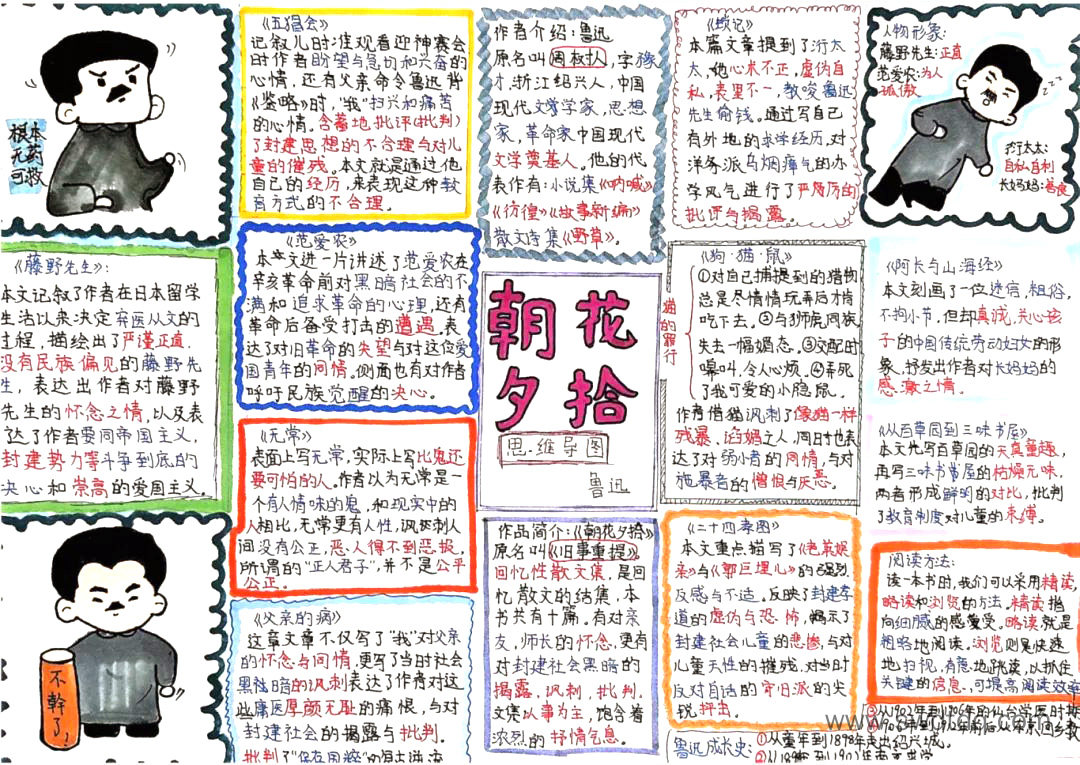 根本
无药
可救
《五猖会》
记叙儿时准观看迎神赛会
时作者盼望与急切和兴奋的
心情，还有父亲命令鲁迅背
《鉴略》时，"我"扫兴和痛苦
的心情。含蓄地批评(批判)
了封建思想的不合理与对儿
童的摧残。本文就是通过他
自己的经历，来表现这种教
育方式的不合理。
作者介绍：鲁迅
原名叫周树人，字豫
才，浙江绍兴人，中国
现代文学家，思想
家，革命家中国现代
文学奠基人。他的代
表作有：小说集《呐喊》
《彷徨》《故事新编》
散文诗集《野草》。
《琐记》
本篇文章提到了衍太
太，他心术不正，虚伪自
私，表里不一，教唆鲁迅
先生偷钱。通过写自己
有外地的求学经历，对
洋务派乌烟瘴气的办
学风气，进行了严厉的
批评与揭露。
人物形象：
藤野先生：正直
范爱农：为人
孤傲
衍太太：
自私自利
长妈妈：善良
《藤野先生》：
本文记叙了作者在日本留学
生活以来决定弃医从文的
过程，描绘出了严谨正直，
没有民族偏见的藤野先
生，表达出作者对藤野
先生的怀念之情，以及表
达了作者爱同帝国主义，
封建势力等斗争到底的
决心和崇高的爱国主义。
《范爱农》
本文进一片讲述了范爱农在
辛亥革命前对黑暗社会的不
满和追求革命的心理，还有
革命后备受打击的遭遇。表
达了对旧革命的失望与对这位爱
国青年的同情。侧面也有对作者
呼吁民族觉醒的决心。
朝花
夕拾
思维导图
鲁迅
《狗·猫·鼠》
猫的罪行
①对自己捕捉到的猎物
总是尽情玩弄后才肯
吃下去。②与狮虎同族
失去一幅媚态。③交配时
嗥叫，令人心烦。④弄死
了我可爱的小隐鼠。
作者借猫讽刺了像猫一样
残暴、谄媚之人，同时也表
达了对弱小者的同情，与对
施暴者的憎恨与厌恶。
《阿长与山海经》
本文刻画了一位迷信，粗俗，
不拘小节，但却真诚，关心孩
子的中国传统劳动妇女的形
象，抒发出作者对长妈妈的
感激之情。
《从百草园到三味书屋》
本文先写百草园的天真童趣，
再写三味书屋的枯燥无味，
两者形成鲜明的对比，批判
了教育制度对儿童的束缚。
《无常》
表面上写无常，实际上写比鬼还
要可怕的人。作者以为无常是一
个有人情味的鬼，和现实中的
人相比，无常更有人性，讽刺人
间没有公正，恶人得不到恶报，
所谓的"正人君子"，并不是公平
公正。
不幹了！
《父亲的病》
这章文章不仅写了"我"对父亲
的怀念与同情，更写了当时社会
黑暗的讽刺表达了作者对这
些庸医厚颜无耻的痛恨，与对
封建社会的揭露与批判。
作品简介：《朝花夕拾》
原名叫《旧事重提》
回忆性散文集，是回
忆散文的结集，本
书共有十篇。有对亲
友，师长的怀念，更有
对封建社会黑暗的
揭露，讽刺，批判。
文集以事为主，饱含着
浓烈的抒情气息。
《二十四孝图》
本文重点描写了《老莱娱
亲》与《郭巨埋儿》的强烈
反感与不适。反映了封建孝
道的虚伪与恐怖，揭示了
封建社会儿童的悲惨，与对
儿童天性的摧残，对当时
反对白话的守旧派的尖
锐抨击。
阅读方法：
读一本书时，我们可以采用精读，
略读和浏览的方法。精读指
向细腻的感受。略读就是
粗略地阅读，浏览则是快速
地扫视，有意地跳读，以抓住
关键的信息，可提高阅读效率
鲁迅成长史：①从童年到1898年走出绍兴城。
③从1902年到1906年的仙台学医时期